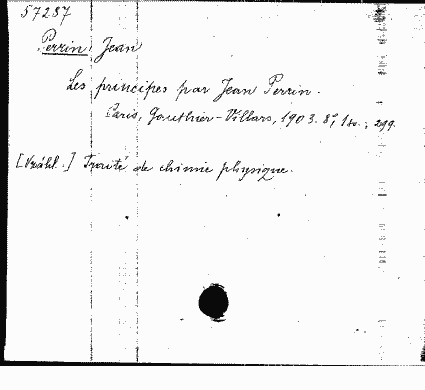 57287
Perrin, Jean
Les principes par Jean Perrin.
Paris, Gauthier-Villars, 1903. 8°, 299.
[Vzáhl.] Traité de chimie physique.